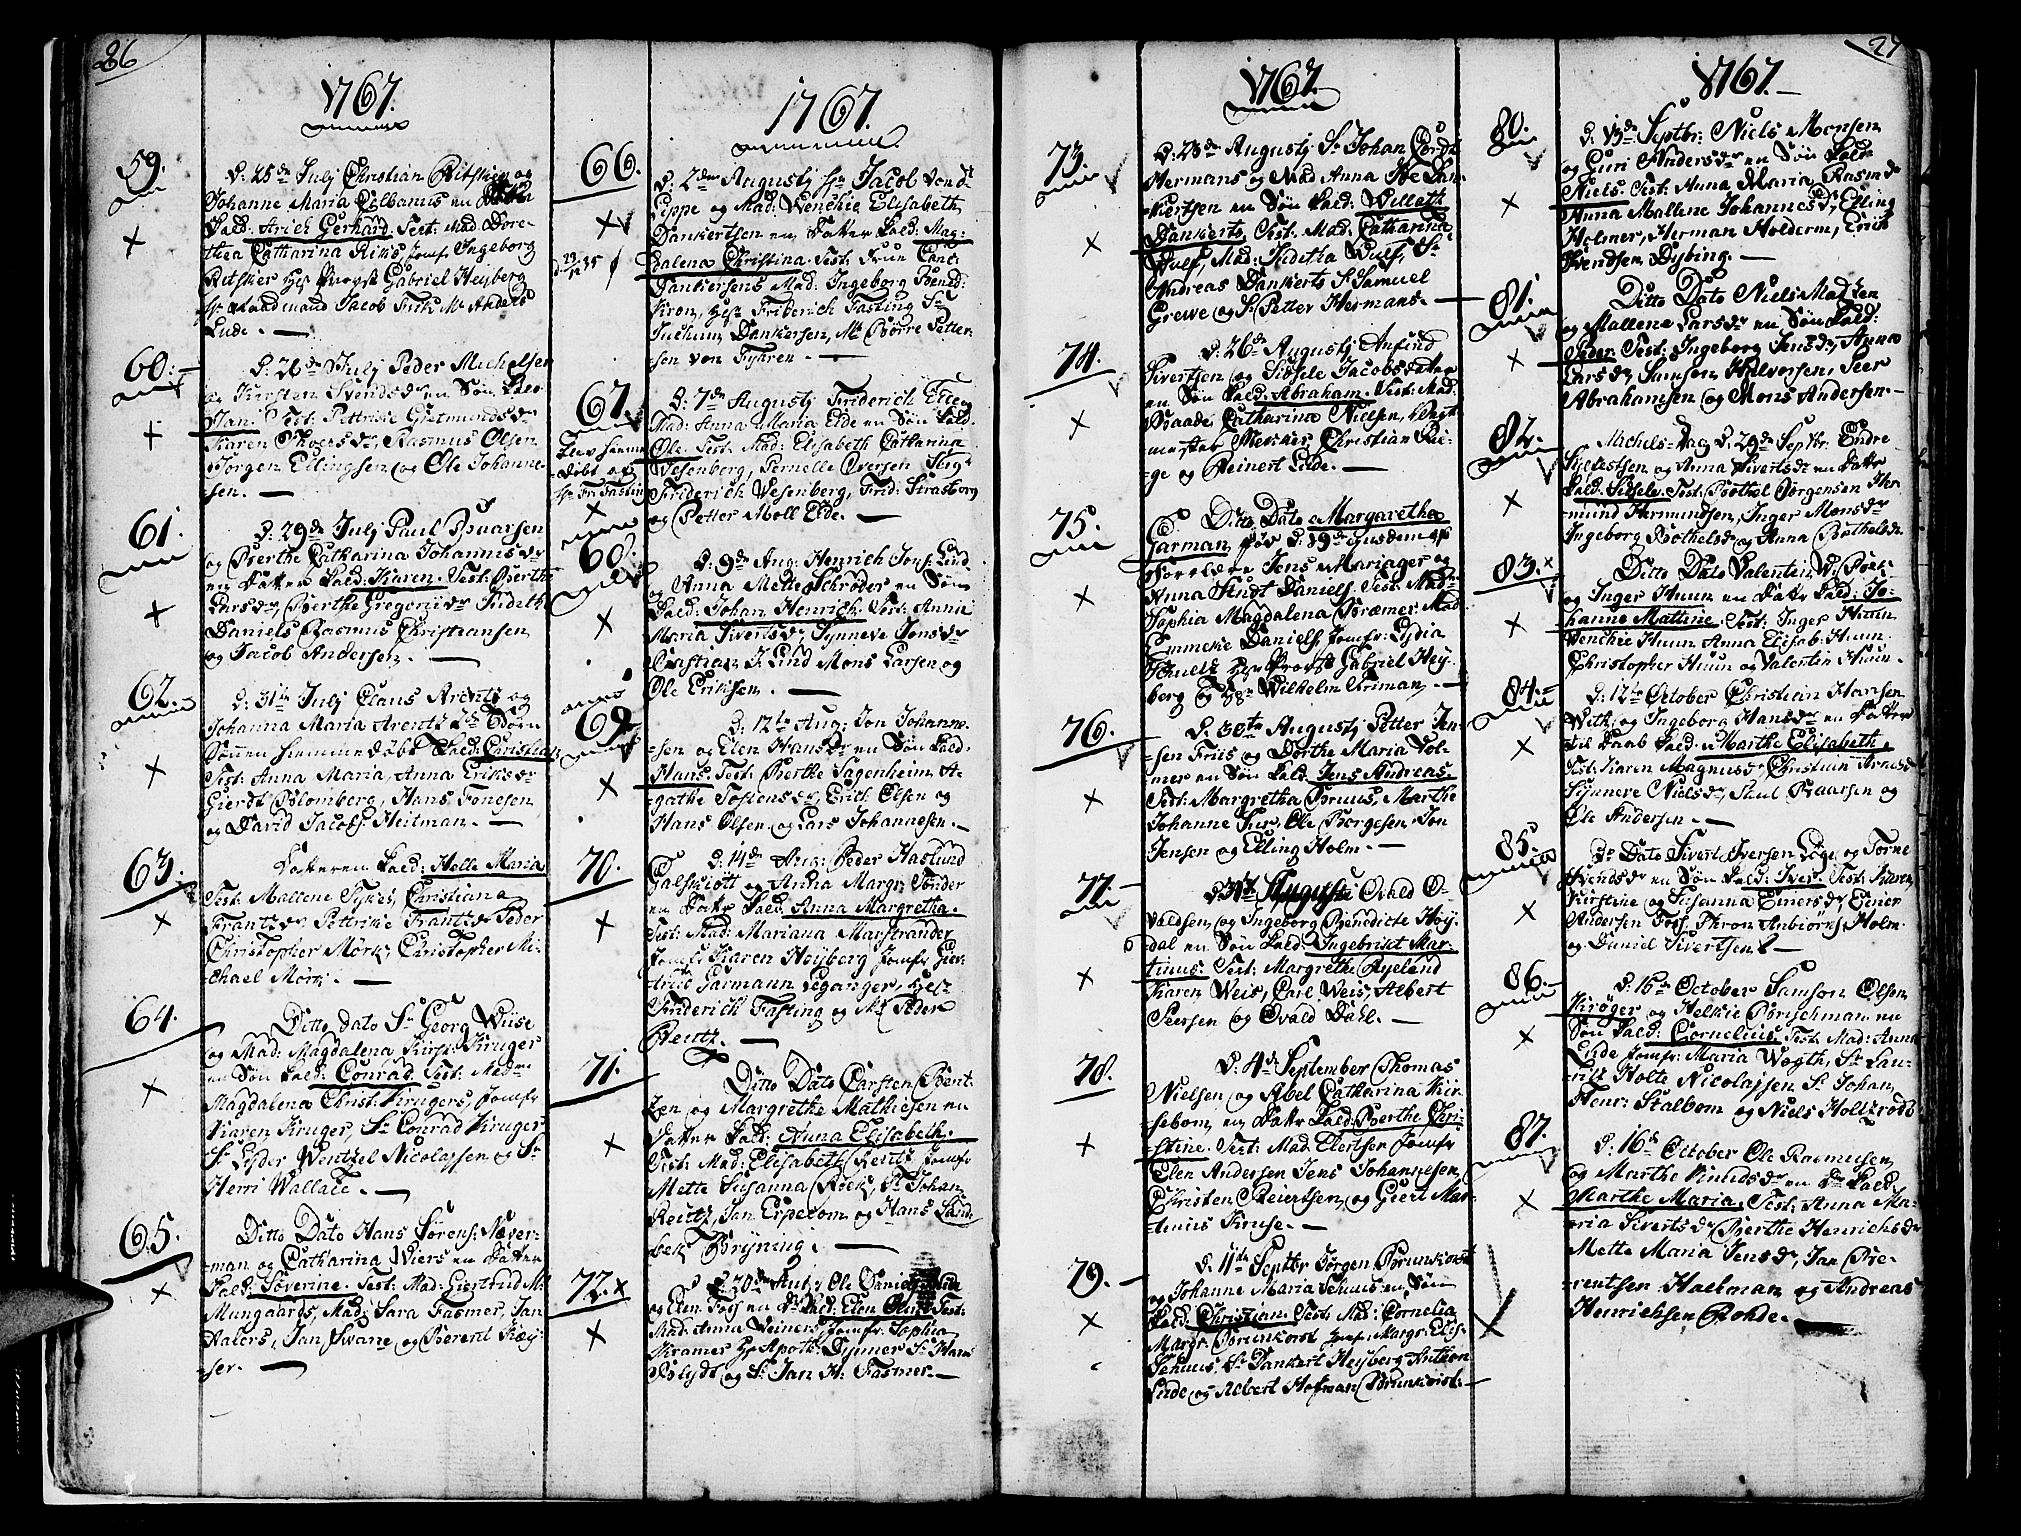 26
1767.
59.
D: 25de Julij Christian Ritskier og
Johanne Maria Colbanus en
Kald: Arich Gerhard Test: Mad Dore-
thea Catharina Riks, Jomf Ingeborg
Ritskier Hr Provst Gabriel Heyberg
Hr Raadmand Jacob Frik Mr Anders
Lude.
60.
D: 26de Julij Peder Michelsen
og Kirsten Svendsdr en Søn Kald
Jan. Test: Pettrike Gietmundsdr
Karen Skoersdr, Rasmus Olsen
Jørgen Ellingsen og Ole Johanne-
sen.
61.
D: 29de Julij Paul Pouarsen
og Berthe Catharina Johannisdr
en Datter Kald: Karen. Test: Berthe
Larsdr, Berthe Gregoriidr Judith
Daniels Rasmus Christiansen
og Jacob Andersen.
62.
D: 31te Julij Claus Arentz og
Johanna Maria Arentz 2de Børn
Sønnen hiemmedøbt Kald: Christian
Test: Anna Maria, Anna Eriksdr
Gierdt Blomberg, Hans Tonesen
og David Jacobs Heitman.
63.
Datteren Kald: Helle Maria
Test: Mallene Fykes, Christiana
Frantzdr Pettrike Frantzdr Peder
Christopher Mørk, Christopher Mi-
chael Mørk.
64.
Ditto dato Sr Georg Wiise
og Mad: Magdalena Kirst: Kruger
en Søn Kald: Conrad. Test: Madme
Magdalena Christ: Krugers, Jomfr
Karen Kruger, Sr Conrad Kruger
Sr Lyder Wentzel Nicolayssen og Sr
Herri Wallace.
65.
Ditto Dato Hans Sørens: Næver-
man og Catharina Wiers en Datter
Kald: Søverine. Test: Mad: Giertrud M:
Mungaards, Mad: Sara Fasmer, Jan
Aalers, Jan Svane og Berent Kæy-
ser.
1767.
66.
D: 2den Augustj Hr Jacob Vendt
Lippe og Mad: Wenchie Elisabeth
Dankertsen en Datter Kald: Mag:
dalena Christina. Test: Frue Canc:
Dankersens Mad: Ingeborg Bened:
Kron, Hr Friderich Fasting Sr
Jochum Dankersen, Mr Børre Petter-
sen von Fyhren.
67.
Blev hiemme
Døbt af
Hr Fr Fasting
D: 7de Augustj Friderich Elde
Mad: Anna Maria Elde en Søn Kald.
Ole. Test: Mad: Elisabeth Catharina
Wesenberg, Pernelle Eversen
Friderich Wesenberg, Frid: Strasborg
og Petter Moll Elde.
68.
D: 9de Aug: Henrich Jons: Lind
og Anna Mette Schrøder en Søn
Kald: Johan Henrich. Test: Anna
Maria Sivertsdr, Synneve Jonsdr
Castian J. Lind Mons Larsen og
Ole Eriksen.
69.
D: 12te Aug: Jon Johanne-
sen og Elen Hansdr en Søn Kald:
Hans. Test: Berthe Sagenheim A-
gathe Tostensdr, Erich Olsen og
Hans Olsen og Lars Johannesen.
70.
D: 14de Aug: Peder Haslund
Galskiøtt og Anna Margr: Tønder
en Datter Kald: Anna Margretha.
Test: Mad: Mariana Marstrander
Jomfr Karen Heyberg Jomfr Gier-
trud Garmann Leganger, Hr
Friderich Fasting og Mr Peder
Reutz.
71.
Ditto Dato Carsten Bent-
zen og Margrethe Mathiesen en
Datter Kald: Anna Elisabeth.
Test: Mad: Elisabeth Reutz Jomfr
Mette Susanna Bøck, Sr Johan
Reutz, Jan Erpecom og Hans Lande-
bek Bryning.
72.
D: 20de Aug: Ole
og Elen en Dr Kald: Elen Olene Test:
Mad: Anna Weiners, Jomfr: Sophia
Kramer Hr Apoth: Dymer Sr Hans
Bøsydt og Sr Jan H: Fasmer.
27
1767.
73.
D: 23de Augustj Sr Johan Cordt
Hermans og Mad Anna Ide Dan-
kiertsen en Søn Kald: Willath
Dankerts. Test: Mad: Catharina
Wulf, Mad: Juditha Wulf, Sr
Andreas Dankerts Sr Samuel
Grewe og Sr Petter Hermans.
74.
D: 26de Augustj Anfind
Sivertsen og Sidsele Jacobsdatter
en Søn Kald: Abraham. Test: Mad:
Baade, Catharina Nielsen, Vagt
mester Meyer, Christian Rie-
ge og Reinert Lude.
75.
Ditto Dato Margaretha
Garman fød D: 19de ejusdem af
Forældre Jens Mariager og
Anna Hindt Daniels. Test: Madme
Sophia Magdalena Bræmer Mad:
Emmeke Daniels Jomfr: Lydia
Hr Provst Gabriel Hey-
berg og Wilhelm Friman.
76.
D: 30te Augustj Petter Jen-
sen Friis og Dorthe Maria Vol-
mer en Søn Kald. Jens Andreas.
Test: Margretha Bruus, Marthe
Johanne Fur, Ole Børgesen Jon
Jensen og Elling Holm.
77.
D: 31te Augustj Ovald O-
valdsen og Ingeborg Benedicte Høy-
dal en Søn Kald: Ingebrikt Mar-
tinus. Test: Margrethe Ryeland
Karen Weis, Carl Weis, Albert
Peersen og Ovald Dahl.
78.
D: 4de September Thomas
Nielsen og Abel Catharina Kir-
sebom en Datter Kald: Berthe Chri-
stine. Test: Mad: Elertsen Jomfr
Elen Andersen Jens Johannesen,
Christen Reiertsen, og Giert Mar-
tinus Kruse.
79.
D: 11te Septbr Jørgen Brunkorst
og Johanne Maria Schuus en Søn
Kald: Christian. Test: Mad: Cornelia
Margr: Brunkorst Jomf. Margr: Elis.
Schuus Sr Dankert Heyberg Anthon
Lude og Albert Hofman Brunkorst.
1767.
80.
D: 13de Septbr: Niels Monsen
og Guri Andersdr en Søn Kald
Niels. Test: Anna Maria Rasmdr
Anna Mallene Johannesdr, Elling
Holmer, Herman Holderm, Erich
Svendsen Dybing.
81.
Ditto Dato Niels Madsen
og Mallene Larsdr en Søn Kald:
Peder. Test: Ingeborg Jensdr, Anne
Larsdr Samson Halvorsen, Peer
Abrahamsen og Mons Andersen
82.
Michels-Dag D. 29de Septbr: Endre
Sylfestsen og Anna Sivertsdr en Datter
Kald: Sidsele. Test: Bothel Jørgensen Her
mund Hermundsen, Inger Monsdr
Ingeborg Bothelsdr og Anna Bothelsdr.
83.
Ditto Dato Valentin W: Bøe-
og Inger Huun en Datter Kald: Jo-
hanne Mattine. Test: Inger Huun
Wenchie Huun Anna Elisab: Huun
Christopher Huun og Valentin Huun.
84.
D: 12te October Christian Hansen
Weth og Ingeborg Hansdr en Datter
til Daab Kald: Marthe Elisabeth.
Test: Karen Magnusdr, Christian Arnesdr
Synneve Nielsdr, Paul Poaarsen og
Ole Andersen.
85.
Do Dato Sivert Iversen Løge og Torne
Svendsdr en Søn Kald: Iver. Test: Karen
Kirstine og Susanna Einersdr Einer
Andersen Fos Thron Anbiørns: Holm
og Daniel Sivertsen
86.
D. 15de October Samson Olsen
Kroger og Helkie Børschman en
Søn Kald: Cornelius. Test: Mad: Anna
Lude Jomfr: Maria Wogth, Sr Lau-
ritz Holte Nicolajsen Sr Johan
Henr: Stalbom og Niels Holtzrode
87.
D. 16de October Ole Rasmusen
og Marthe Knudsdr en Dr Kald
Marthe Maria. Test: Anna Ma-
ria Sivertsdr, Berthe Henrichsdr
Mette Maria Jensdr, Jan Be-
rentsen Haelman og Andreas
Henrichsen Rohde.